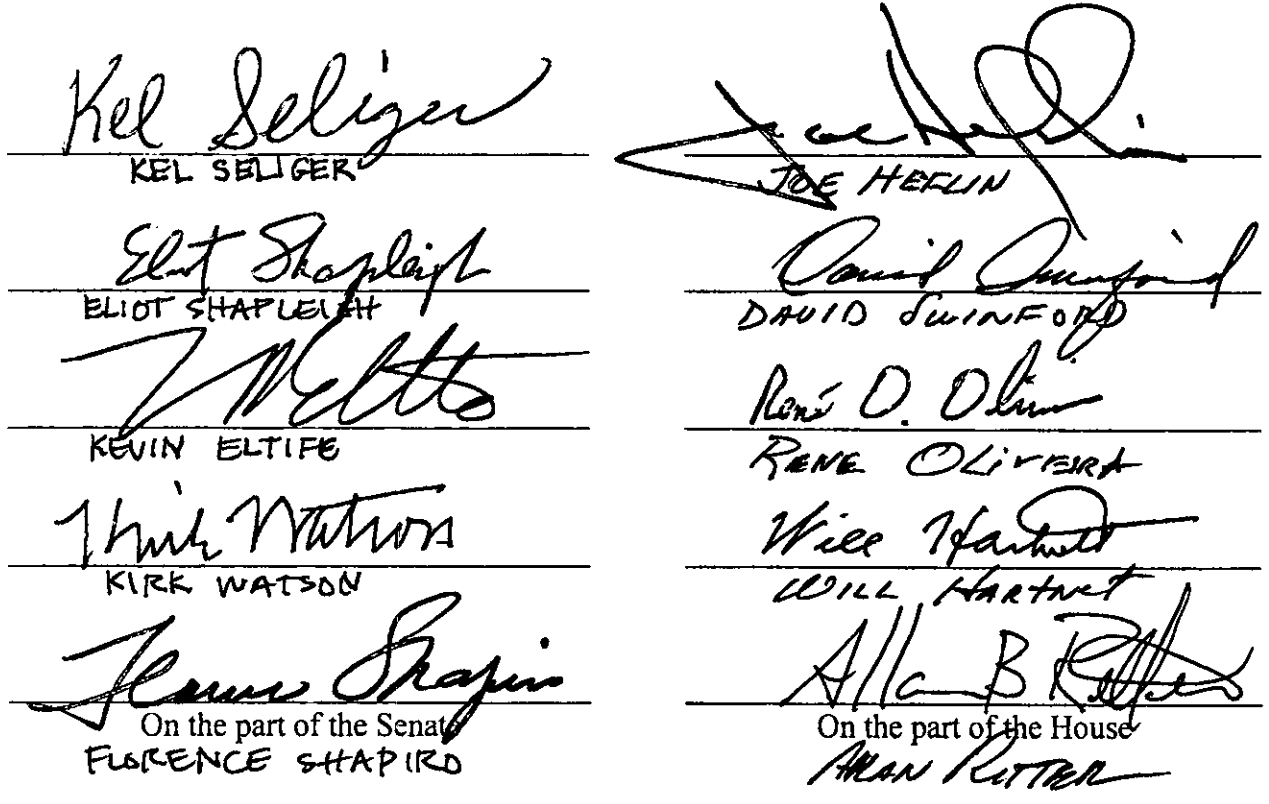 Kel Seliger
KEL SELIGER
Eliot Shapleigh
ELIOT SHAPLEIGH
KEVIN ELTIFE
Kirk Watson
KIRK WATSON
Florence Shapiro
On the part of the Senate
FLORENCE SHAPIRO
Joe Heflin
JOE HEFLIN
David Swinford
DAVID SWINFORD
René O. Oliveira
RENE OLIVEIRA
Will Hartnett
WILL HARTNET
Allan B Ritter
On the part of the House
ALLAN RITTER